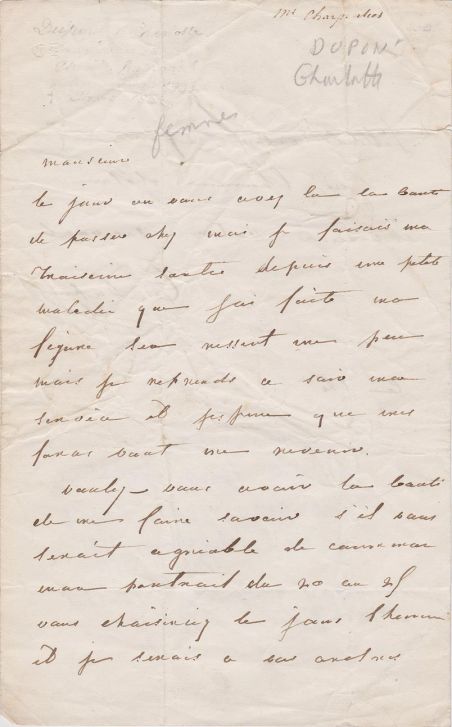 Mr Charpentier
DUPONT
Charlotte
femmes
monsieur
le jour ou vous avez eu la bonté
de passer chez moi je faisais ma
troisieme sortie depuis une petite
maladie que j'ai faite ma
figure s'en ressent un peu
mais je reprends ce soir mon
service et j'espere que mes
forces vont me revenir.
voulez-vous avoir la bonté
de me faire savoir s'il vous
serait agreable de commencer
mon portrait du 20 au 25
vous choisirez le jour l'heure
et je serais a vos ordres